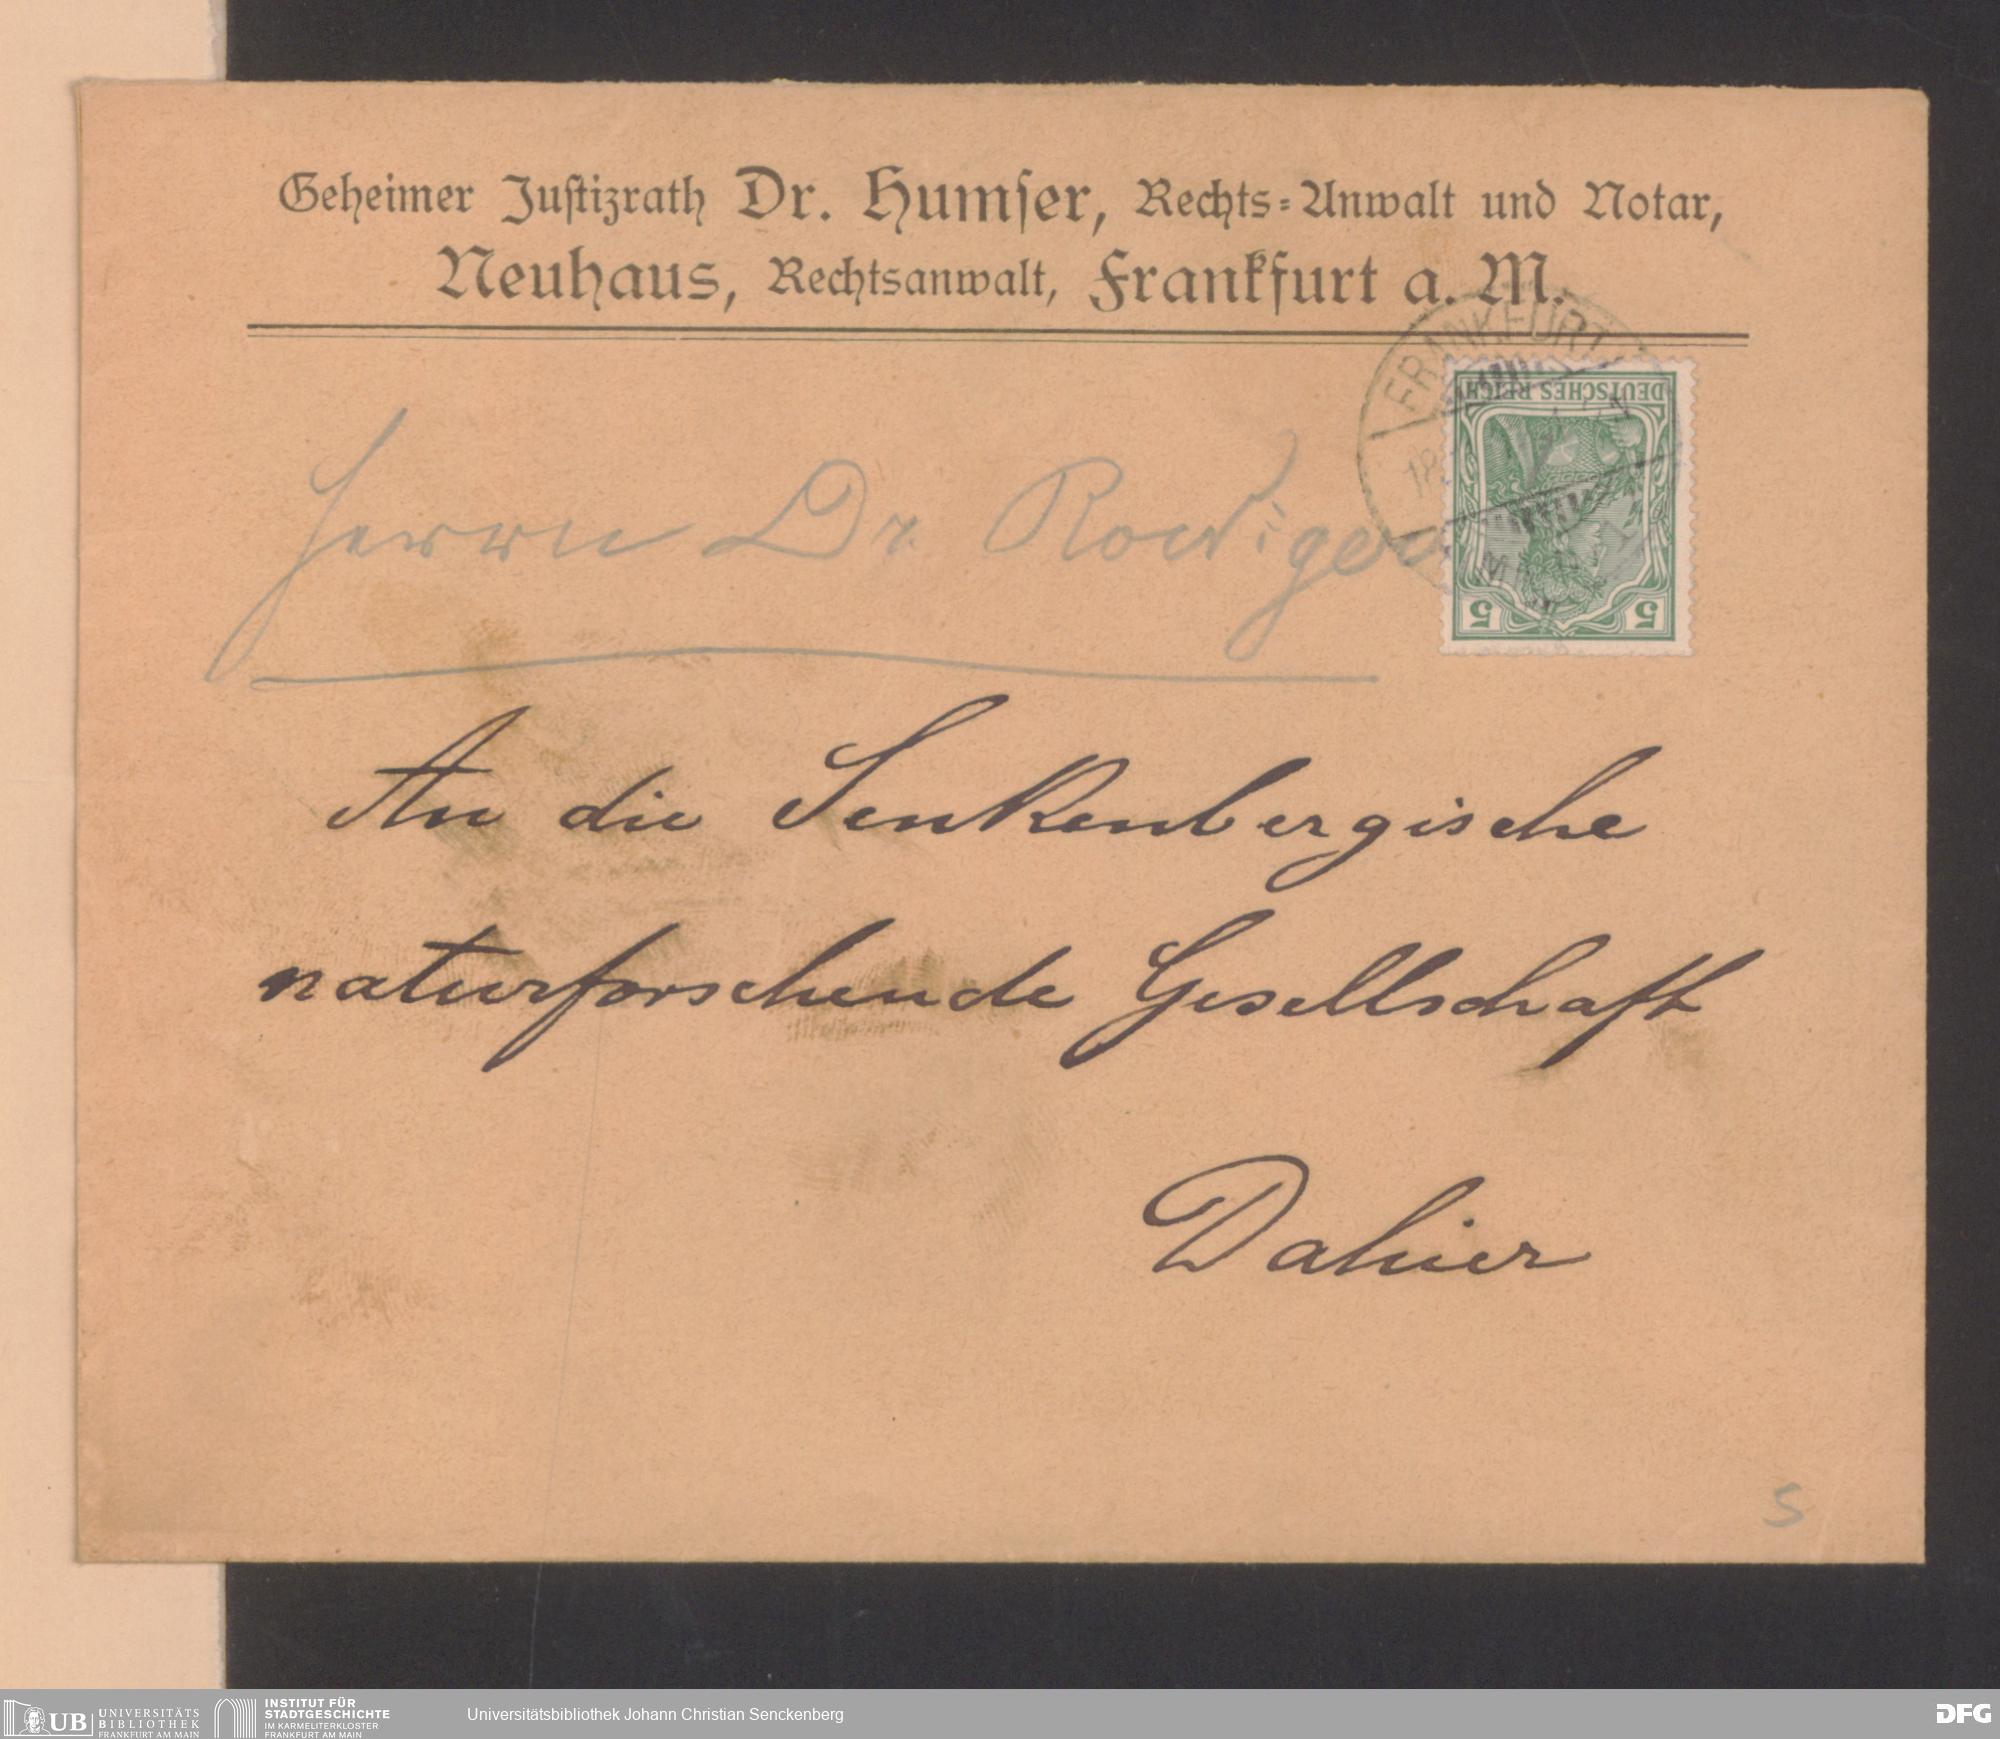 Geheimer Justizrath Dr. Humser, Rechts-Anwalt und Notar,
Neuhaus, Rechtsanwalt, Frankfurt a. M.
FRANKFURT
DEUTSCHES REICH
5 5
Herrn Dr. Roediger
An die Senkenbergische
naturforschende Gesellschaft
Dahier
5
UB UNIVERSITÄTS
BIBLIOTHEK
FRANKFURT AM MAIN
INSTITUT FÜR
STADTGESCHICHTE
IM KARMELITERKLOSTER
FRANKFURT AM MAIN
Universitätsbibliothek Johann Christian Senckenberg
DFG